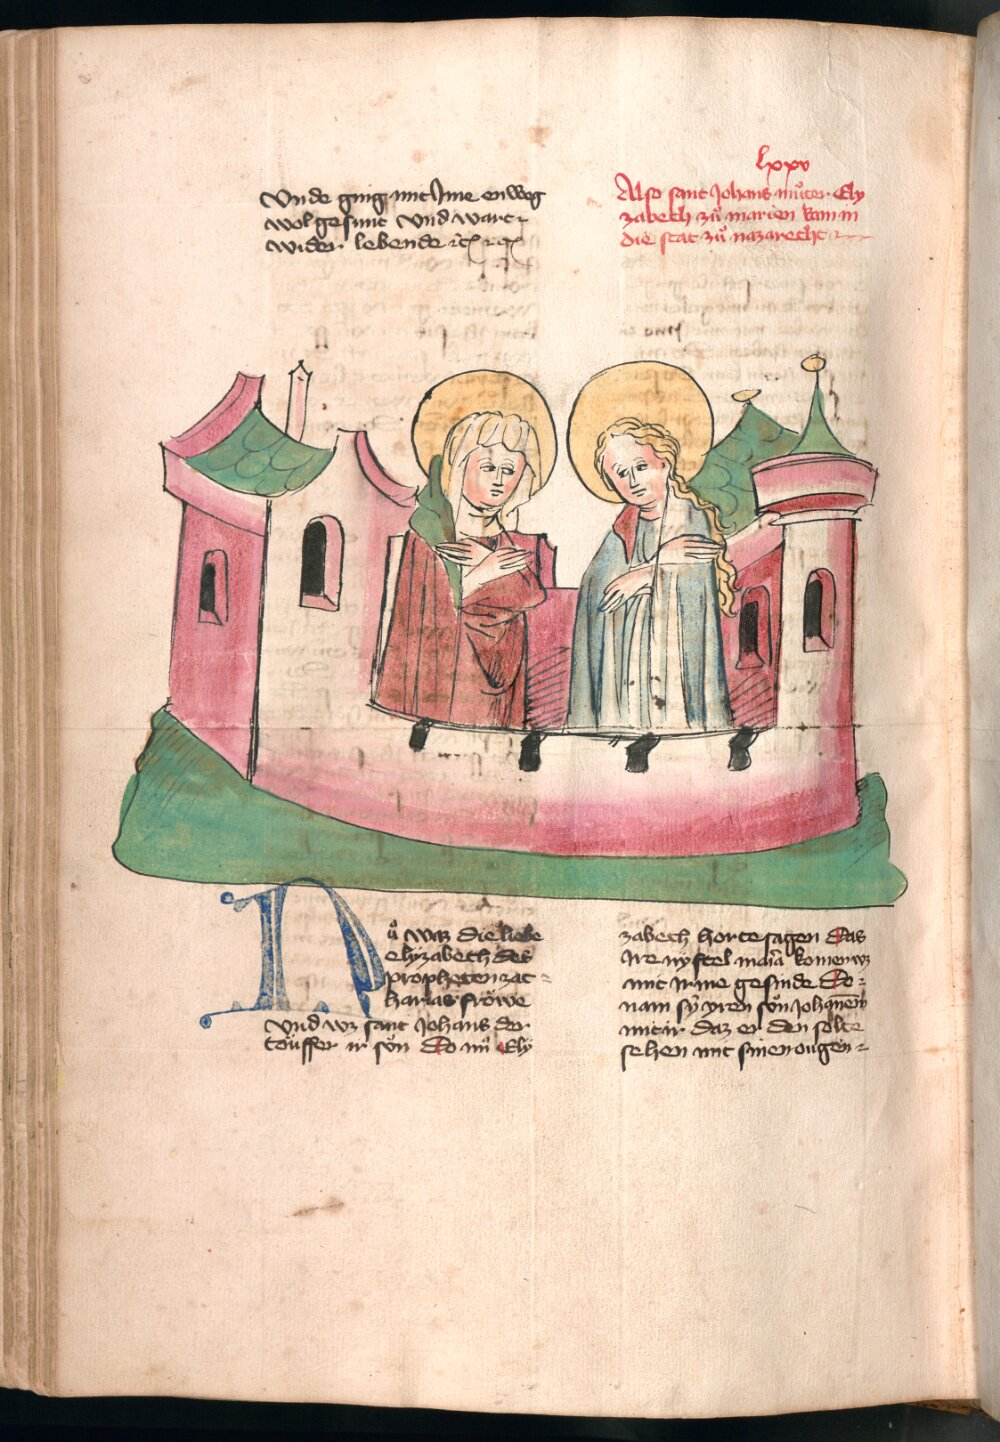 Vnde ging mit Ime enweg
wol gesunt vnd wart
wider lebende
lxxv
Also sant Johans můter Ely
zabeth zů marien kam in
die stat zů nazareht
Nů waz die liebe
elyzabeth des
propheten zac
harias fröwe
vnd wz sant Johans der
töuffer ir sůn Do nů Ely
zabeth horte sagen Das
Ire nyftel maria komen wz
mit irme gesinde Do
nam sỳ yren sůn Johannem
mit ir daz er den solte
sehen mit sinen ougen